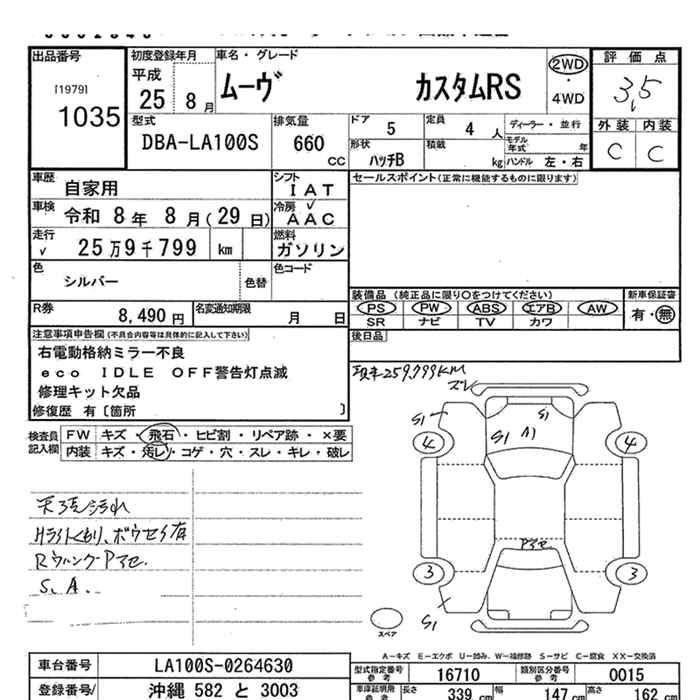 出品番号
[1979]
1035
初度登録年月
平成
25 8 月
車名・グレード
ムーヴ カスタムRS
2WD
・
4WD
評価点
3,5
外装 内装
C C
型式
DBA-LA100S
排気量
660
CC
ドア 5
定員 4 人
形状 ハッチB
積載 kg
ディーラー・並行
モデル年式 年
ハンドル 左・右
車歴 自家用
シフト IAT
車検 令和 8 年 8 月(29日)
冷房 AAC
走行 25万9千799 km
燃料 ガソリン
色 シルバー
色替
色コード
R券 8,490 円
名変通知期限 月 日
セールスポイント(正常に機能するものに限ります)
装備品(純正品に限り○をつけてください)
PS PW ABS エアB AW
SR ナビ TV カワ
新車保証書
有・無
後日品
注意事項申告欄(不具合内容等は具体的に記入して下さい)
右電動格納ミラー不良
eco IDLE OFF警告灯点滅
修理キット欠品
修復歴 有〔箇所 〕
検査員記入欄
FW キズ・飛石・ヒビ割・リペア跡・×要
内装 キズ・汚レ・コゲ・穴・スレ・キレ・破レ
259,799KM
ズレ
S1
S1
S1 A1
4 4
Pアセ
3 3
S1
スペア
天張汚れ
Hライトくもり、ボウセイ有
Rウイング-Pアセ.
S.A.
A-キズ E-エクボ U-凹み、W-補修跡 S-サビ C-腐食 XX-交換済
車台番号 LA100S-0264630
登録番号/ 沖縄 582 と 3003
型式指定番号 参考 16710
類別区分番号 参考 0015
車庫証明用 参考 長さ 339 cm 幅 147 cm 高さ 162 cm